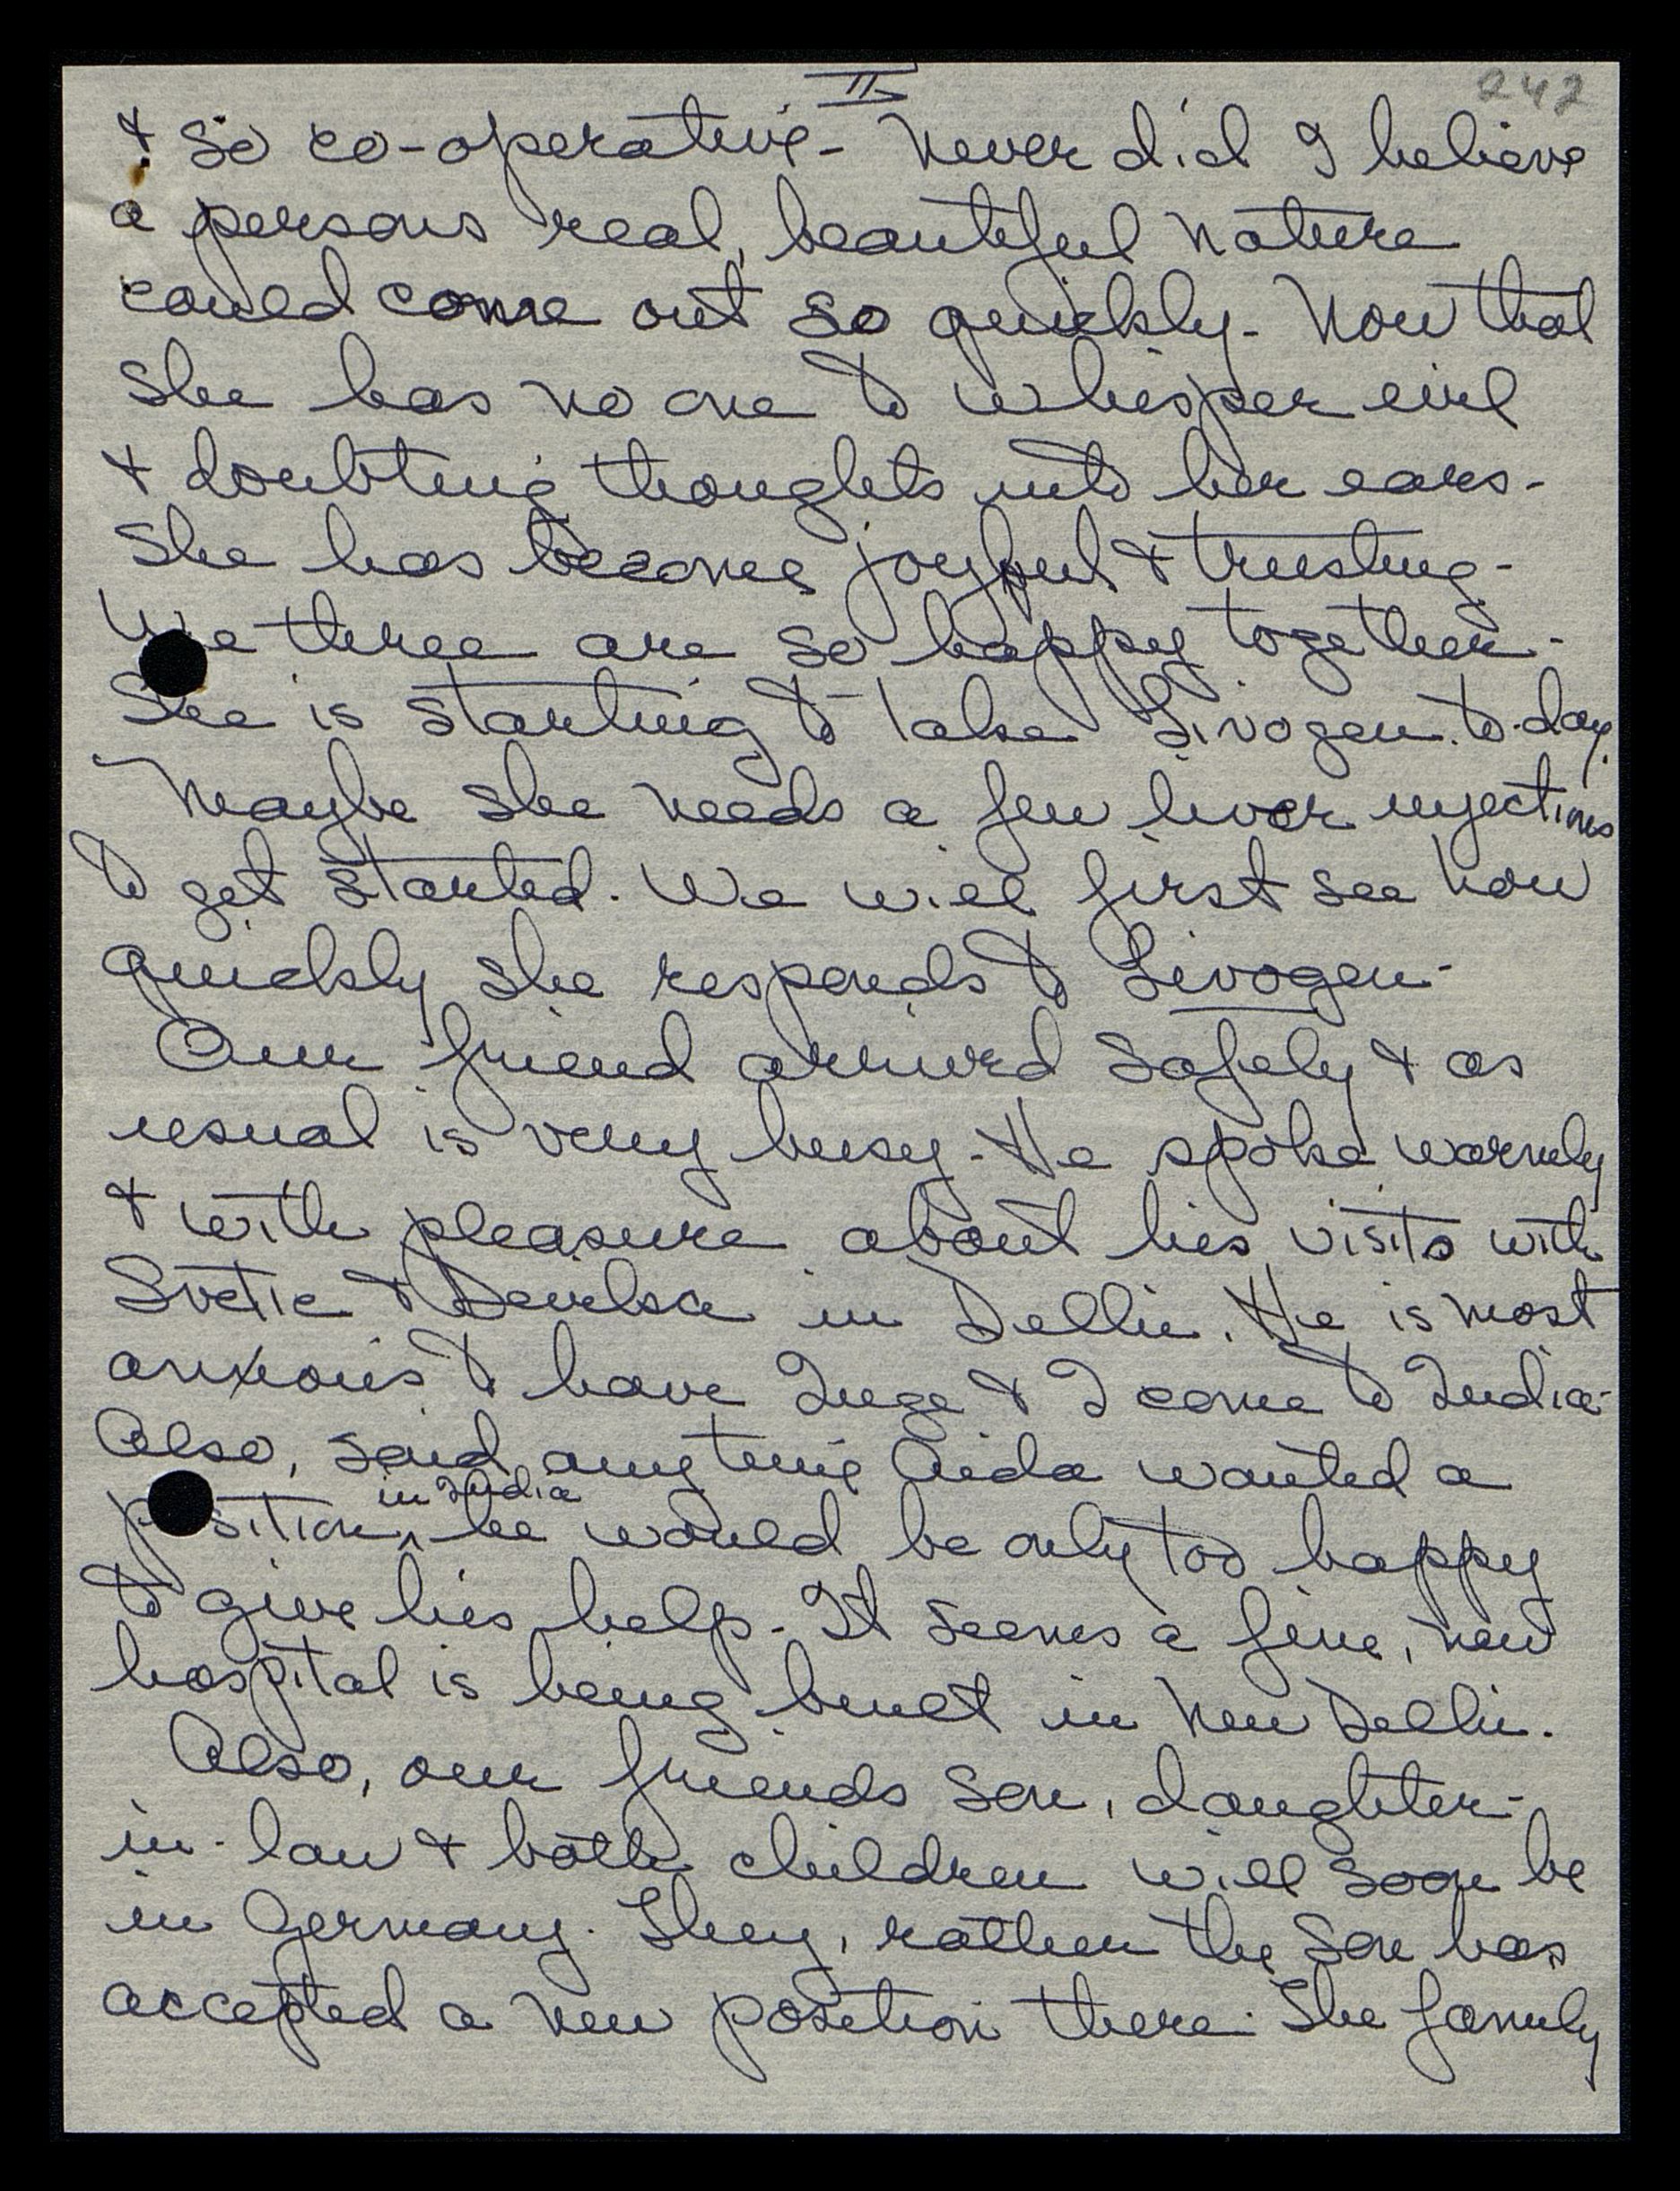 II
242
& so co-operative - Never did I believe
a persons real, beautiful nature
could come out so quickly - Now that
she has no one to whisper evil
& doubting thoughts into her ears -
She has become joyful & trusting -
We three are so happy together -
She is starting to take Livogen to-day.
Maybe she needs a few liver injections
to get started. We will first see how
quickly she responds to Livogen -
Our friend arrived safely & as
usual is very busy - He spoke warmly
& with pleasure about his visits with
Svetie & Devika in Delhi. He is most
anxious to have Inge & I come to India -
Also, said anytime Aida wanted a
in India
position, he would be only too happy
to give his help - It seems a fine, new
hospital is being built in New Delhi.
Also, our friends son, daughter-
in-law & both children will soon be
in Germany. They, rather the son has
accepted a new position there. The family